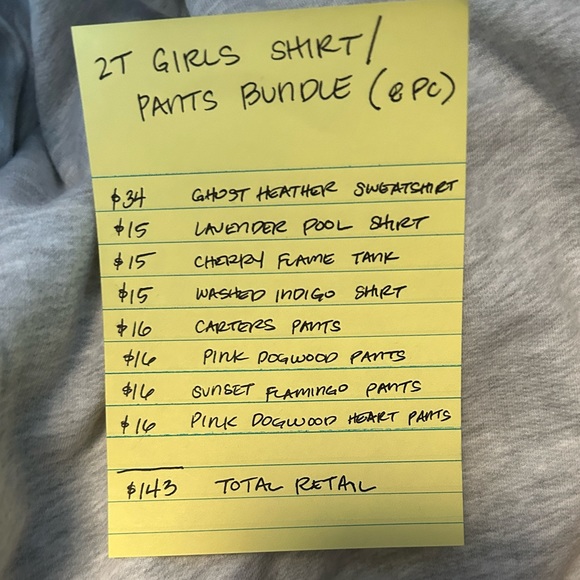 2T GIRLS SHIRT/
PANTS BUNDLE (8 PC)
$34 GHOST HEATHER SWEATSHIRT
$15 LAVENDER POOL SHIRT
$15 CHERRY FLAME TANK
$15 WASHED INDIGO SHIRT
$16 CARTERS PANTS
$16 PINK DOGWOOD PANTS
$16 SUNSET FLAMINGO PANTS
$16 PINK DOGWOOD HEART PANTS
$143 TOTAL RETAIL